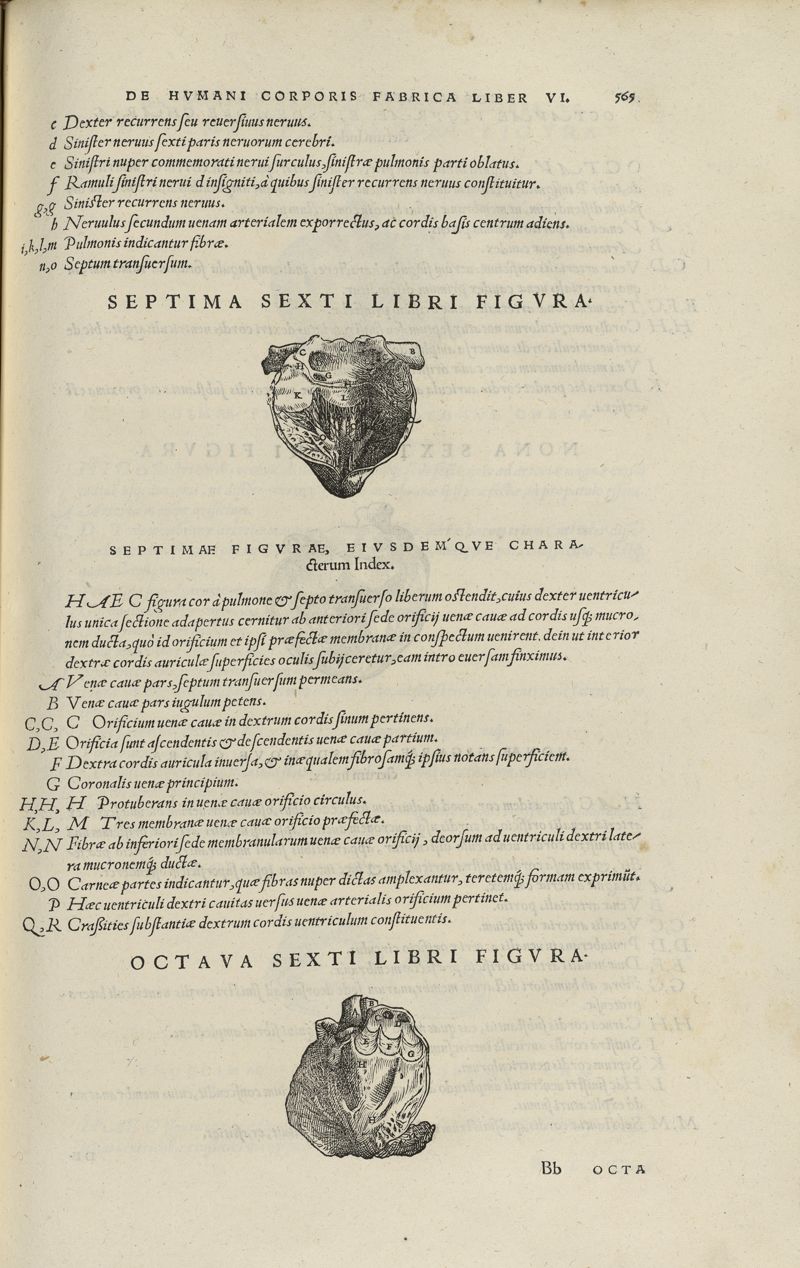 DE HVMANI CORPORIS FABRICA LIBER VI. 565.
c Dexter recurrens ſeu reuerſiuus neruus.
d Siniſter neruus ſexti paris neruorum cerebri.
e Siniſtri nuper commemorati nerui ſurculus, ſiniſtræ pulmonis parti oblatus.
f Ramuli ſiniſtri nerui d inſigniti, à quibus ſiniſter recurrens neruus conſtituitur.
g,g Siniſter recurrens neruus.
h Neruulus ſecundum uenam arterialem exporrectus, ac cordis baſis centrum adiens.
i,k,l,m Pulmonis indicantur fibræ.
n,o Septum tranſuerſum.
SEPTIMA SEXTI LIBRI FIGVRA.
C B
H G H
K L
SEPTIMAE FIGVRAE, EIVSDEMQVE CHARA-
cterum Index.
HAEC figura cor à pulmone & ſepto tranſuerſo liberum oſtendit, cuius dexter uentricu-
lus unica ſectione adapertus cernitur ab anteriori ſede orificij uenæ cauæ ad cordis uſq; mucro,
nem ducta, quò id orificium et ipſi præfectæ membranæ in conſpectum uenirent. dein ut interior
dextræ cordis auriculæ ſuperficies oculis ſubijceretur, eam intro euerſam finximus.
A Venæ cauæ pars, ſeptum tranſuerſum permeans.
B Venæ cauæ pars iugulum petens.
C,C, C Orificium uenæ cauæ in dextrum cordis ſinum pertinens.
D,E Orificia ſunt aſcendentis & deſcendentis uenæ cauæ partium.
F Dextra cordis auricula inuerſa, & inæqualem fibroſamq; ipſius notans ſuperficiem.
G Coronalis uenæ principium.
H,H, H Protuberans in uenæ cauæ orificio circulus.
K,L, M Tres membranæ uenæ cauæ orificio præfectæ.
N,N Fibræ ab inferiori ſede membranularum uenæ cauæ orificij, deorſum ad uentriculi dextri late-
ra mucronemq; ductæ.
O,O Carneæ partes indicantur, quæ fibras nuper dictas amplexantur, teretemq; formam exprimũt.
P Hæc uentriculi dextri cauitas uerſus uenæ arterialis orificium pertinet.
Q,R Craſsities ſubſtantiæ dextrum cordis uentriculum conſtituentis.
OCTAVA SEXTI LIBRI FIGVRA.
A B
C D
E F G
H
H
Bb OCTA